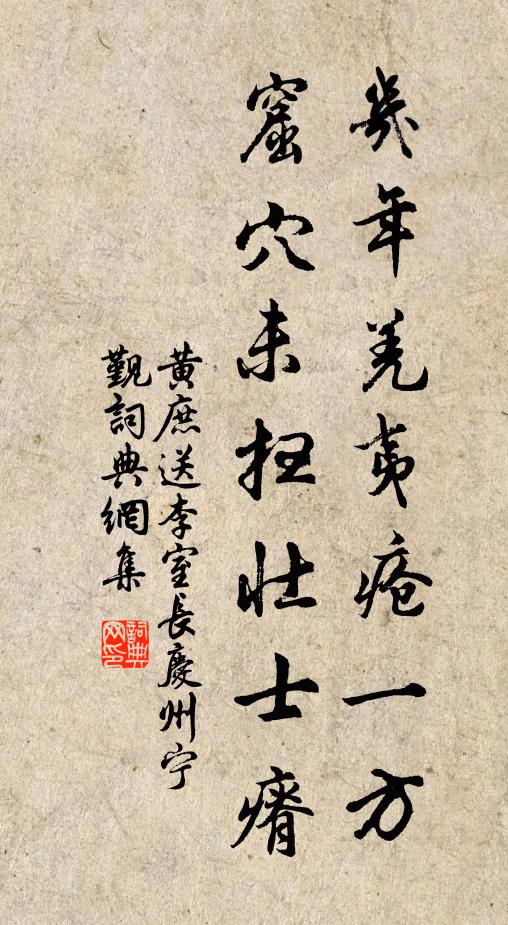 幾年羌夷疮一方
窟穴未扫壮士瘠
黃庶送李室長慶州宁
覲詞典網集
詞典网印